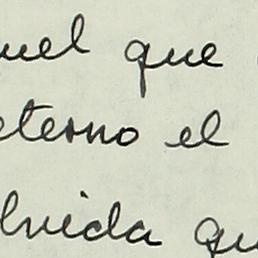 uel que
eterno el
lvida qu